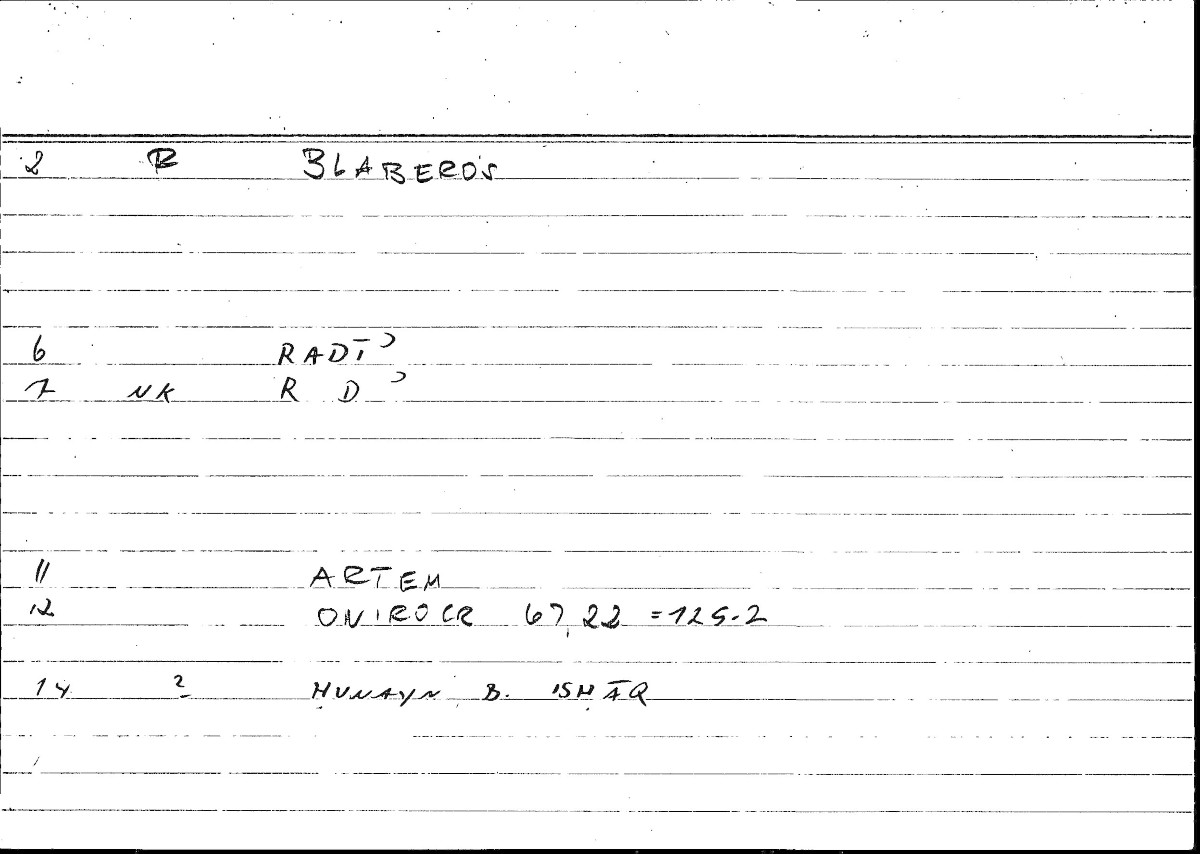 2 R BLABERÓS
6 RADĪʾ
7 NK R D ʾ
11 ARTEM
12 ONIROCR 67,22 = 125.2
14 2 ḤUNAYN B. ISḤĀQ